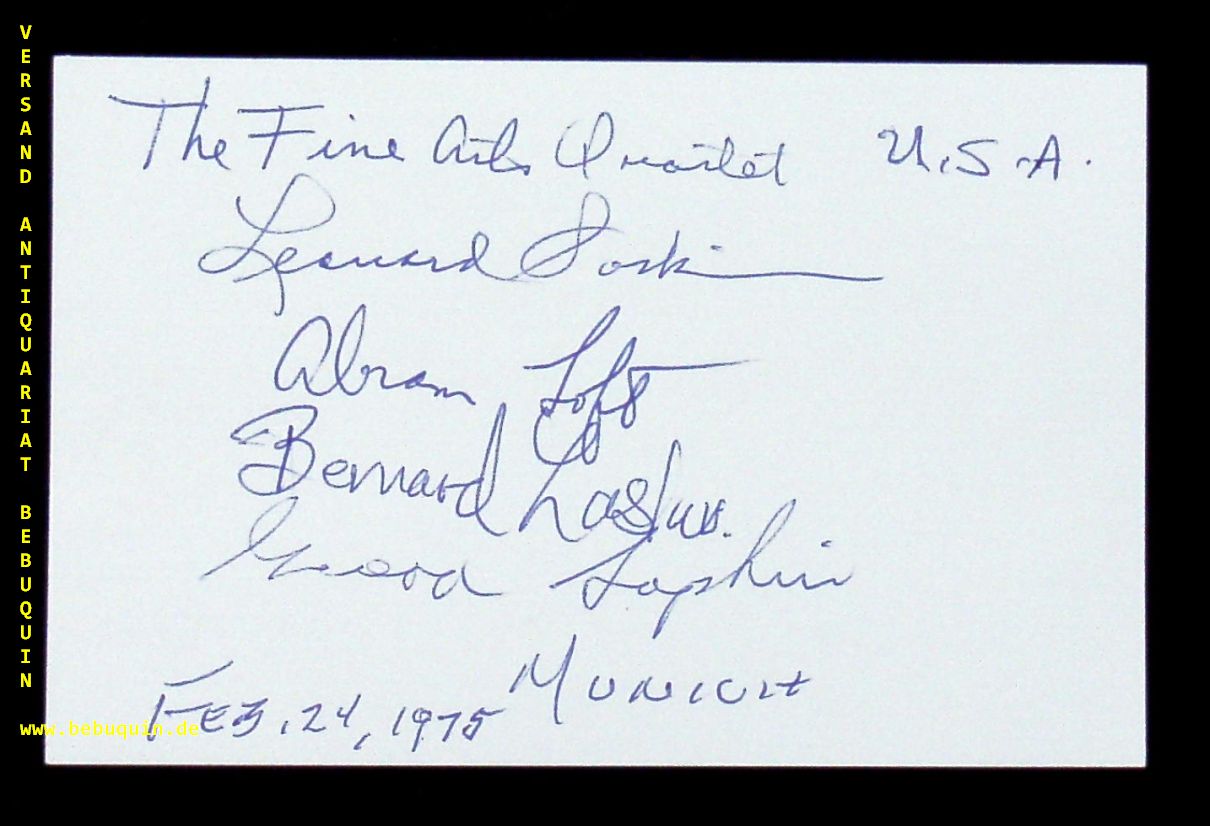 VERSAND ANTIQUARIAT BEBUQUIN
The Fine Arts Quartet U.S.A.
Leonard Sorkin
Abram Loft
Bernard Zaslav.
George Sopkin
Munich
Feb. 24, 1975
www.bebuquin.de